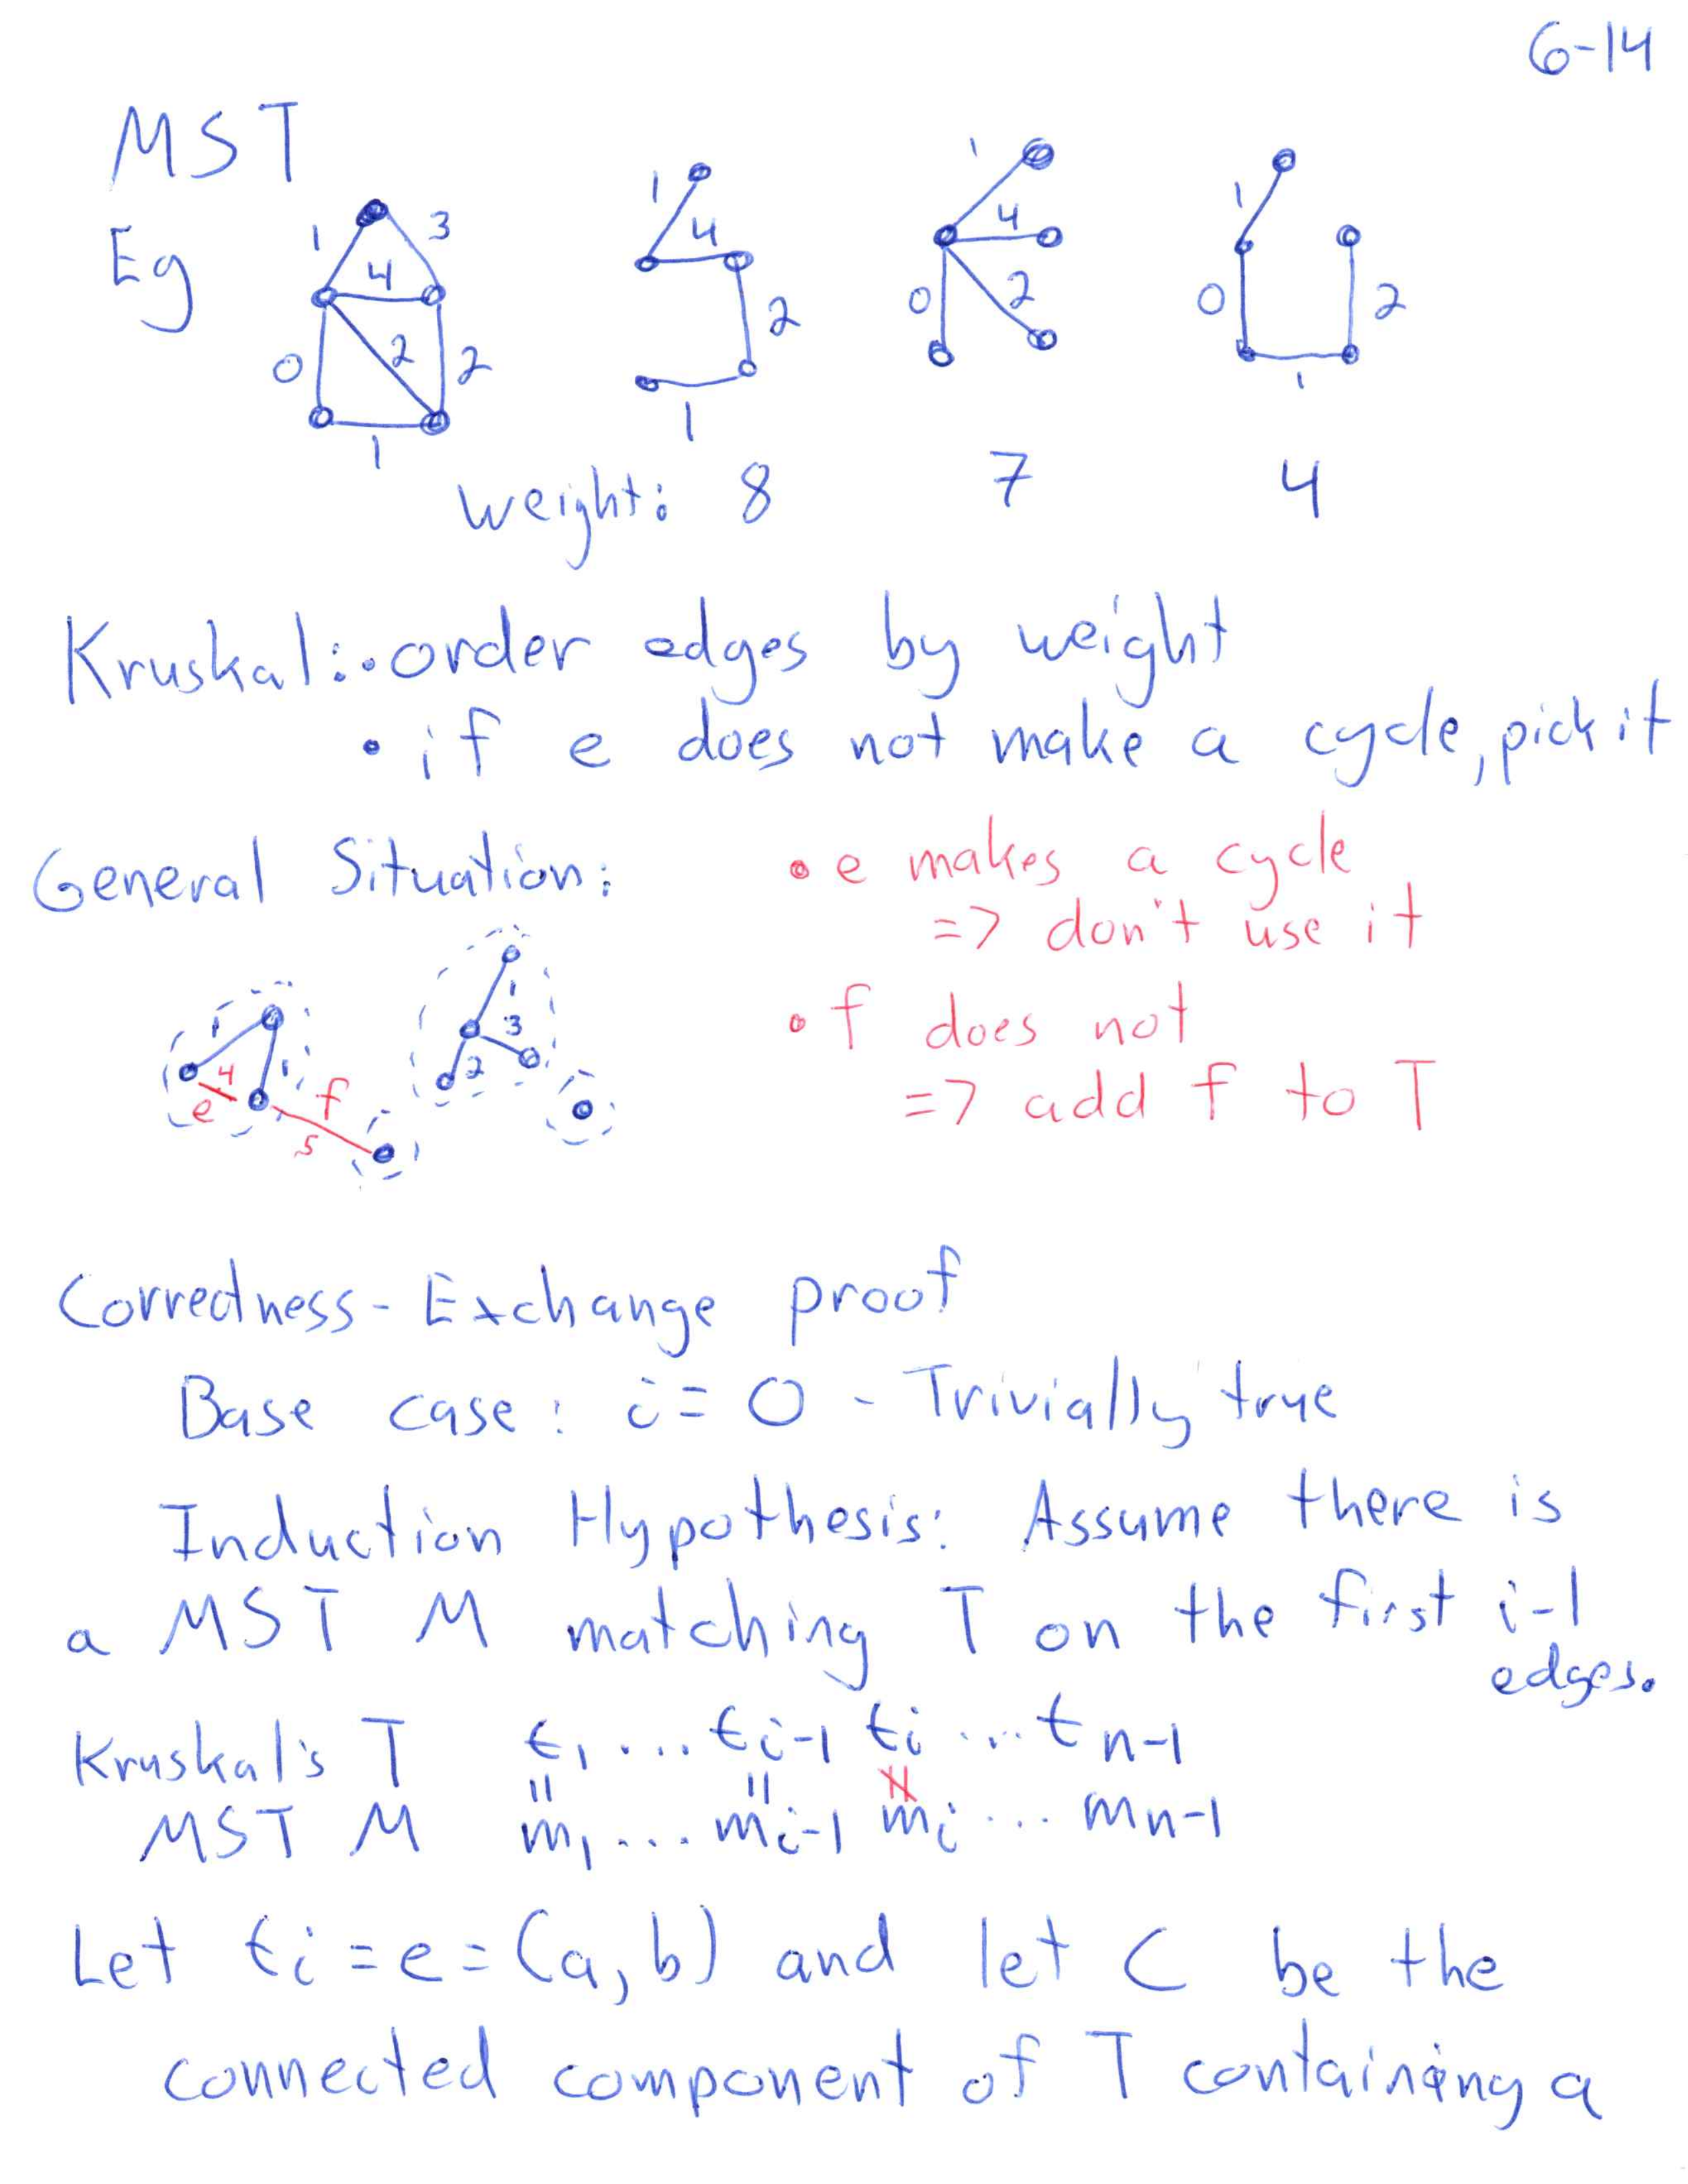 6-14
MST
Eg
1 3 4 0 2 2 1
1 4 2 1
1 4 0 2
1 0 2 1
weight: 8 7 4
Kruskal: • order edges by weight
• if e does not make a cycle, pick it
General Situation:
• e makes a cycle
=> don't use it
• f does not
=> add f to T
1 1 4 e f 5
1 3 2
Correctness - Exchange proof
Base case: i = 0 - Trivially true
Induction Hypothesis: Assume there is
a MST M matching T on the first i-1
edges.
Kruskal's T t1 ... ti-1 ti ... tn-1
= = ≠
MST M m1 ... mi-1 mi ... mn-1
Let ti = e = (a, b) and let C be the
connected component of T containing a